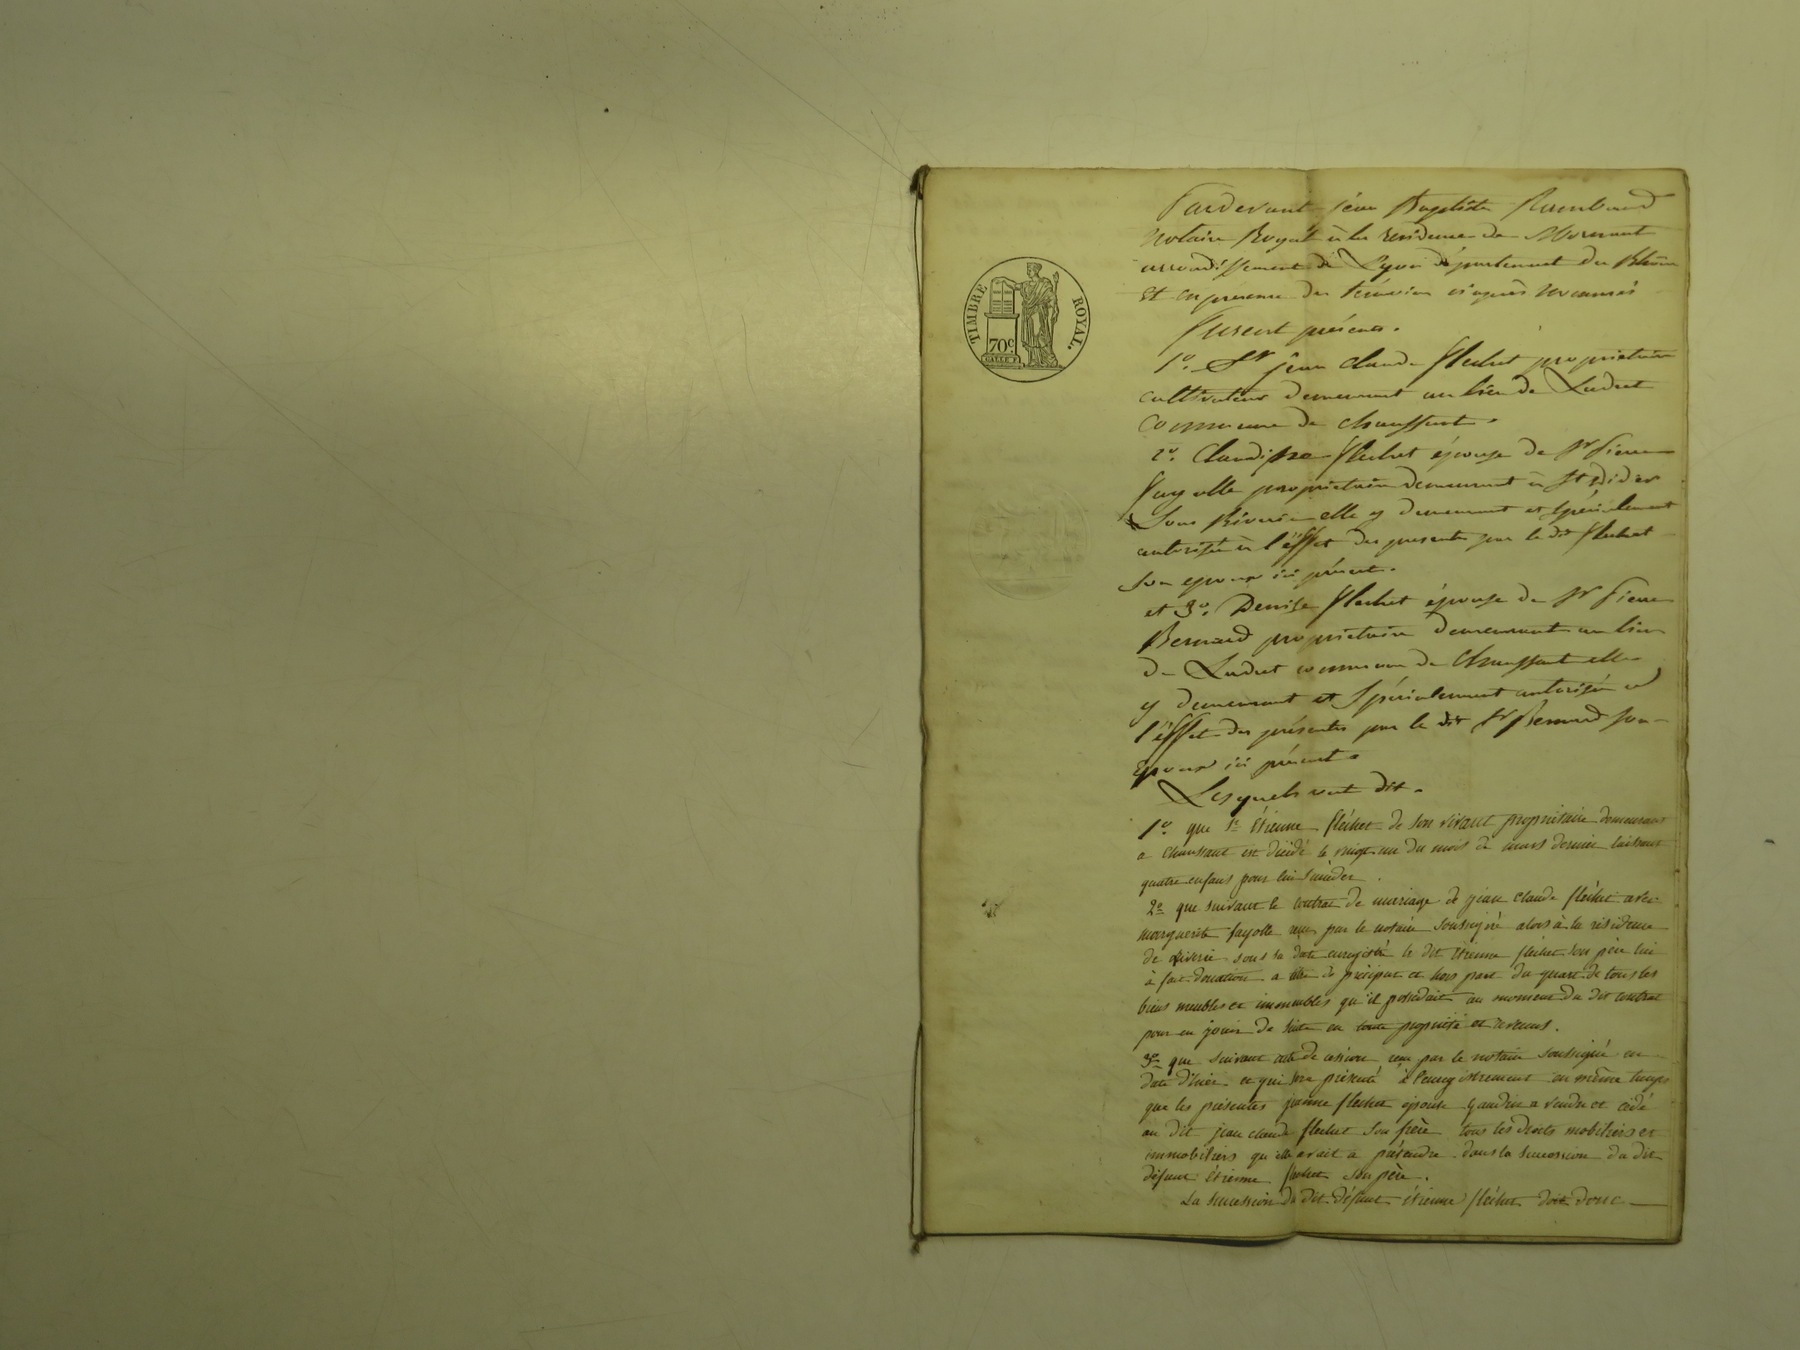 TIMBRE ROYAL.
70c.
Pardevant jean Baptiste Rambaud
Notaire Royal à la residence de Mornant
arrondissement de Lyon département du Rhône
Et en presence des témoins ciaprès nommés
furent présents.
1o. Sr jean Claude flechet propriétaire
cultivateur demeurant au lieu de Luduet
commune de chaussant.
2o. Claudine flechet épouse de Sr Pierre
fayolle propriétaire demeurant à St Didier
Sous Riverie elle y demeurant et spécialement
autorisée à l'éffet des presentes par le dit flechet
son epoux ici présent.
et 3o. Denise flechet épouse de Sr Pierre
Bernard propriétaire demeurant au lieu
de Luduet commune de Chaussant elle
y demeurant et Spécialement autorisée à
l'éffet des présentes par le dit Sr Bernard son
Epoux ici présent.
Lesquels ont dit.
1o. que Sr Etienne flechet de son vivant propriétaire demeurant
a chaussant est décédé le vingt un du mois de mars dernier laissant
quatre enfans pour lui succéder.
2o que suivant le contrat de mariage de jean Claude flechet avec
marguerite fayolle reçu par le notaire soussigné alors à la résidence
de Riverie sous sa date enregistré le dit Etienne flechet son père lui
à fait donation a titre de préciput et hors part du quart de tous les
biens meubles et immeubles qu'il possédait au moment du dit contrat
pour en jouir de suite en toute propriété et revenus.
3o que suivant acte de cession reçu par le notaire soussigné en
date d'hier et qui sera présenté à l'enregistrement en même temps
que les présentes jeanne flechet épouse Gaudin a vendu et cédé
au dit jean claude flechet son frère tous les droits mobiliers et
immobiliers qu'elle avait a prétendre dans la succession du dit
défunt Etienne flechet son père.
La succession du dit défunt étienne flechet doit donc